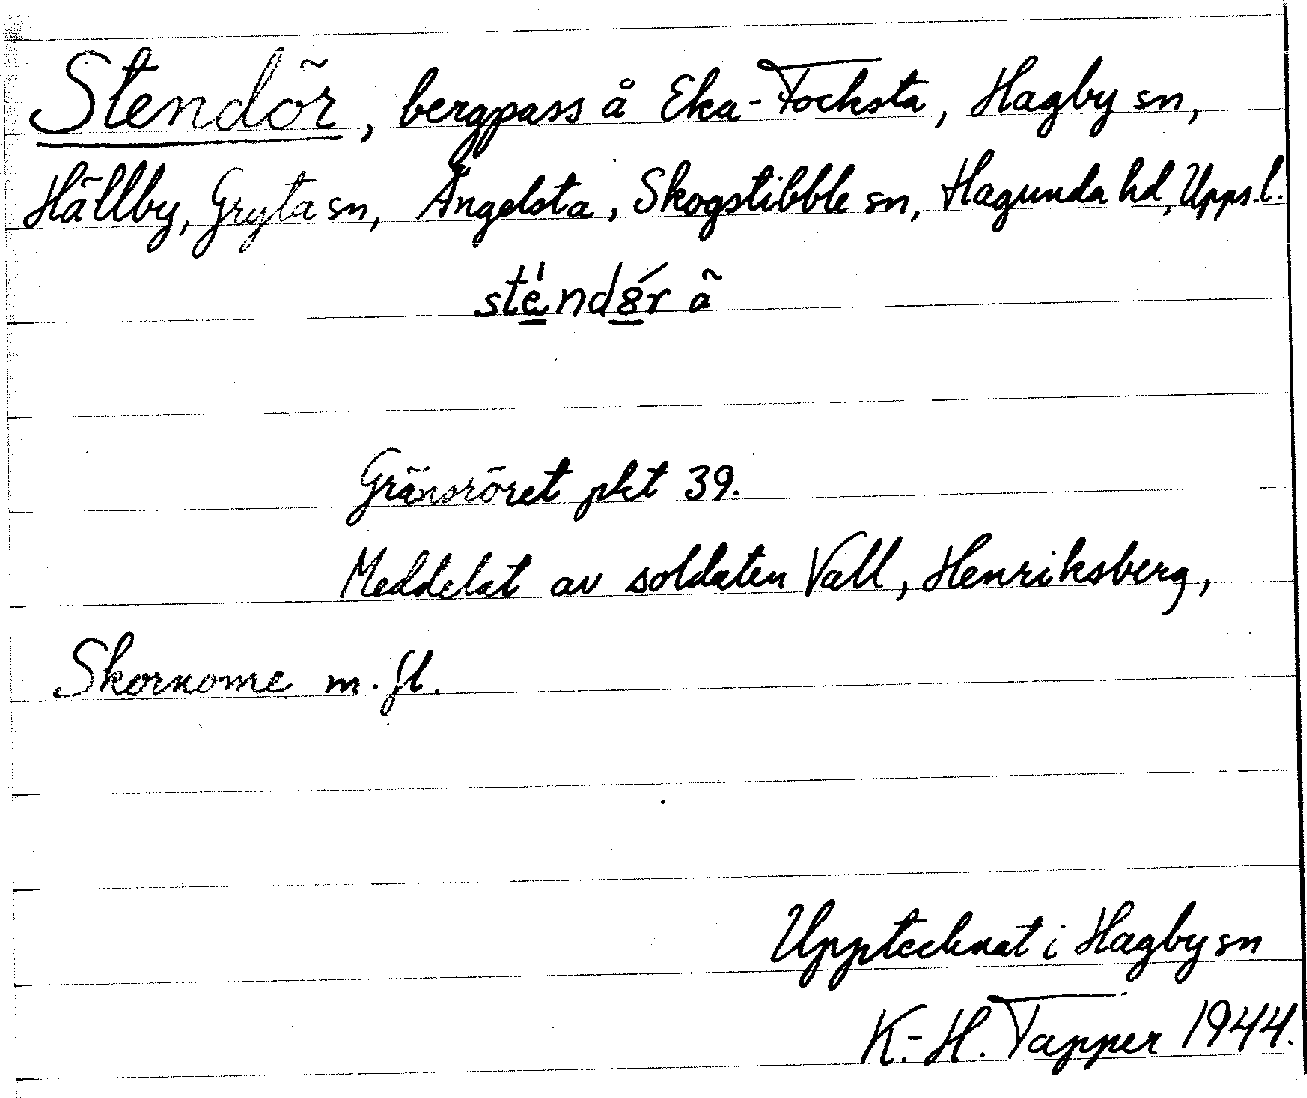 Stendör, bergpass å Eka-Focksta, Hagby sn,
Hällby, Gryta sn, Ängelsta, Skogstibble sn, Hagunda hd, Upps.l.
Gränsröret pkt 39.
Meddelat av soldaten Vall, Henriksberg,
m. fl.
Upptecknat i Hagby sn
K.-H. Tapper 1944.